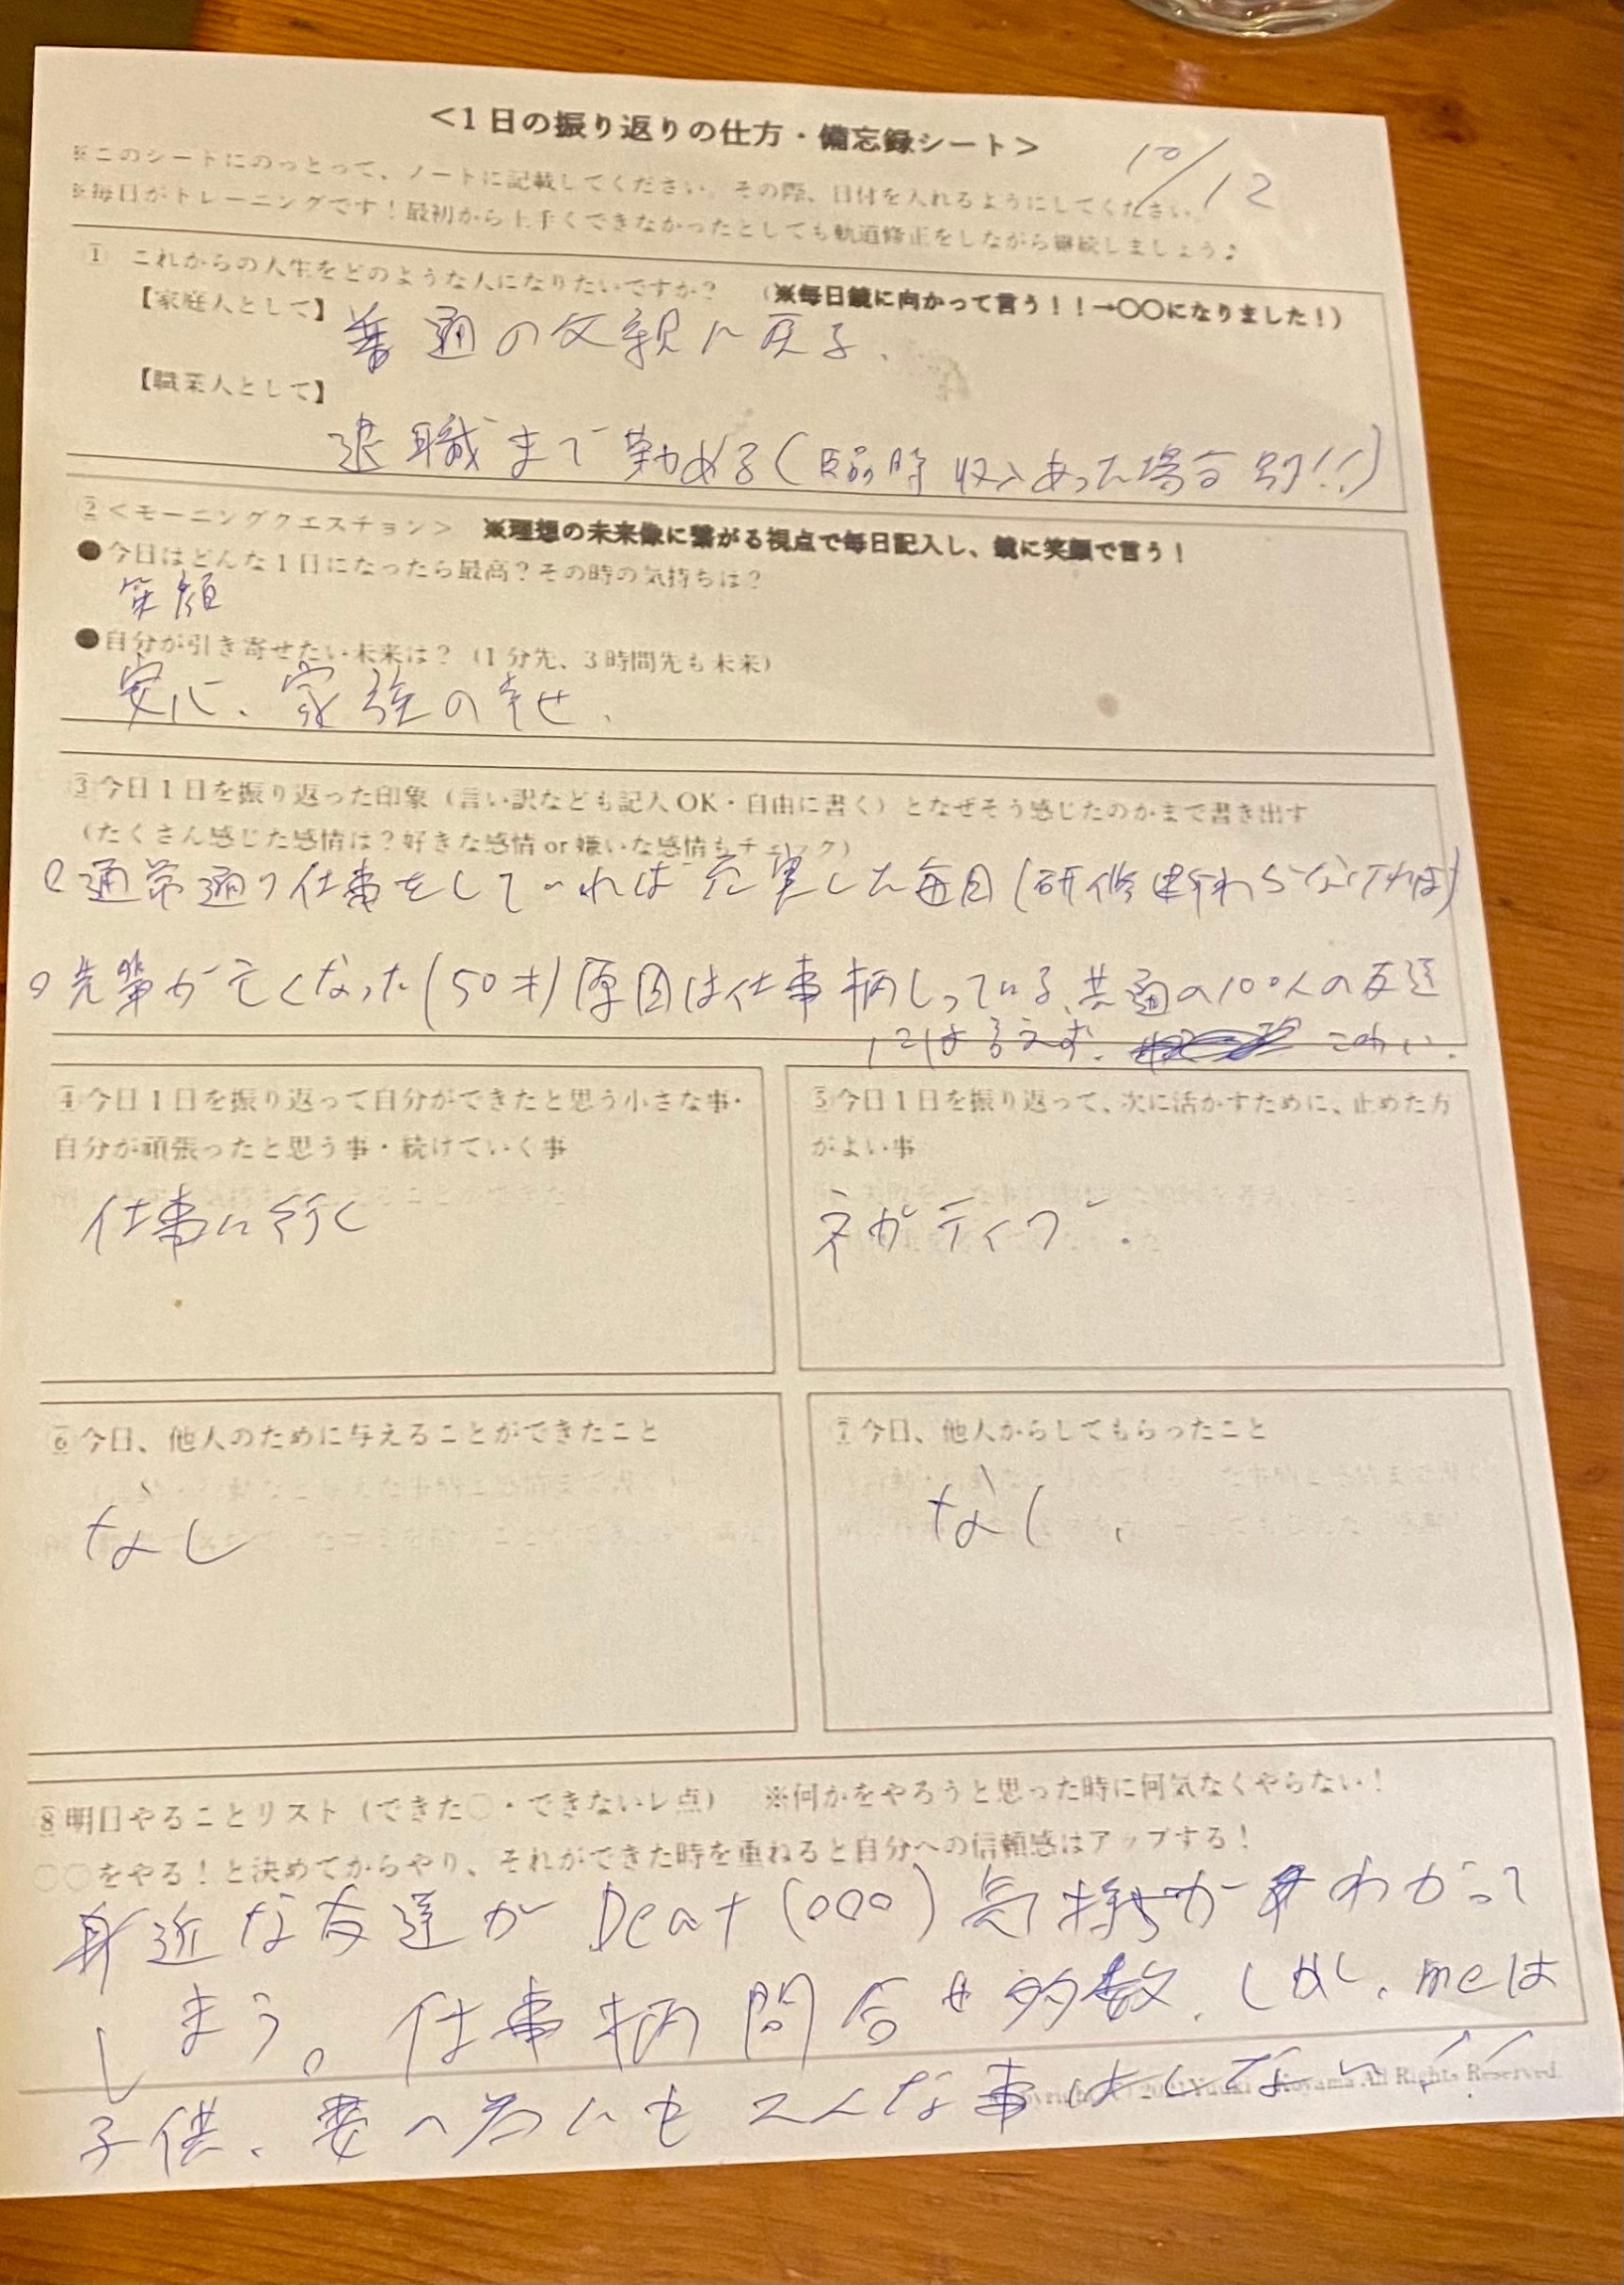 <1日の振り返りの仕方・備忘録シート>
10/12
※このシートにのっとって、ノートに記載してください。その際、日付を入れるようにしてください。
※毎日がトレーニングです！最初から上手くできなかったとしても軌道修正をしながら継続しましょう♪
① これからの人生をどのような人になりたいですか？ （※毎日鏡に向かって言う！！→〇〇になりました！）
【家庭人として】 普通の父親に戻る.
【職業人として】
退職まで勤める(臨時収入あった場合別!!)
②＜モーニングクエスチョン＞ ※理想の未来像に繋がる視点で毎日記入し、鏡に笑顔で言う！
●今日はどんな１日になったら最高？その時の気持ちは？
笑顔
●自分が引き寄せたい未来は？（１分先、３時間先も未来）
安心、家族の幸せ.
③今日１日を振り返った印象（言い訳なども記入OK・自由に書く）となぜそう感じたのかまで書き出す
（たくさん感じた感情は？好きな感情 or 嫌いな感情もチェック）
○通常通り仕事をしていれば充実した毎日(研修断わらなければ)
○先輩が亡くなった(50才)原因は仕事柄しっている、共通の100人の友達
には言えず. こわい.
④今日１日を振り返って自分ができたと思う小さな事・
自分が頑張ったと思う事・続けていく事
仕事に行く
⑤今日１日を振り返って、次に活かすために、止めた方
がよい事
ネガティブ.
⑥今日、他人のために与えることができたこと
なし
⑦今日、他人からしてもらったこと
なし.
⑧明日やることリスト（できた〇・できないレ点） ※何かをやろうと思った時に何気なくやらない！
〇〇をやる！と決めてからやり、それができた時を重ねると自分への信頼感はアップする！
身近な友達が Deat (000) 気持ちがわかって
しまう。仕事柄問合せ多数. しかし、meは
子供、妻へ為にもそんな事はしない!!
Yuuki Koyama All Rights Reserved.